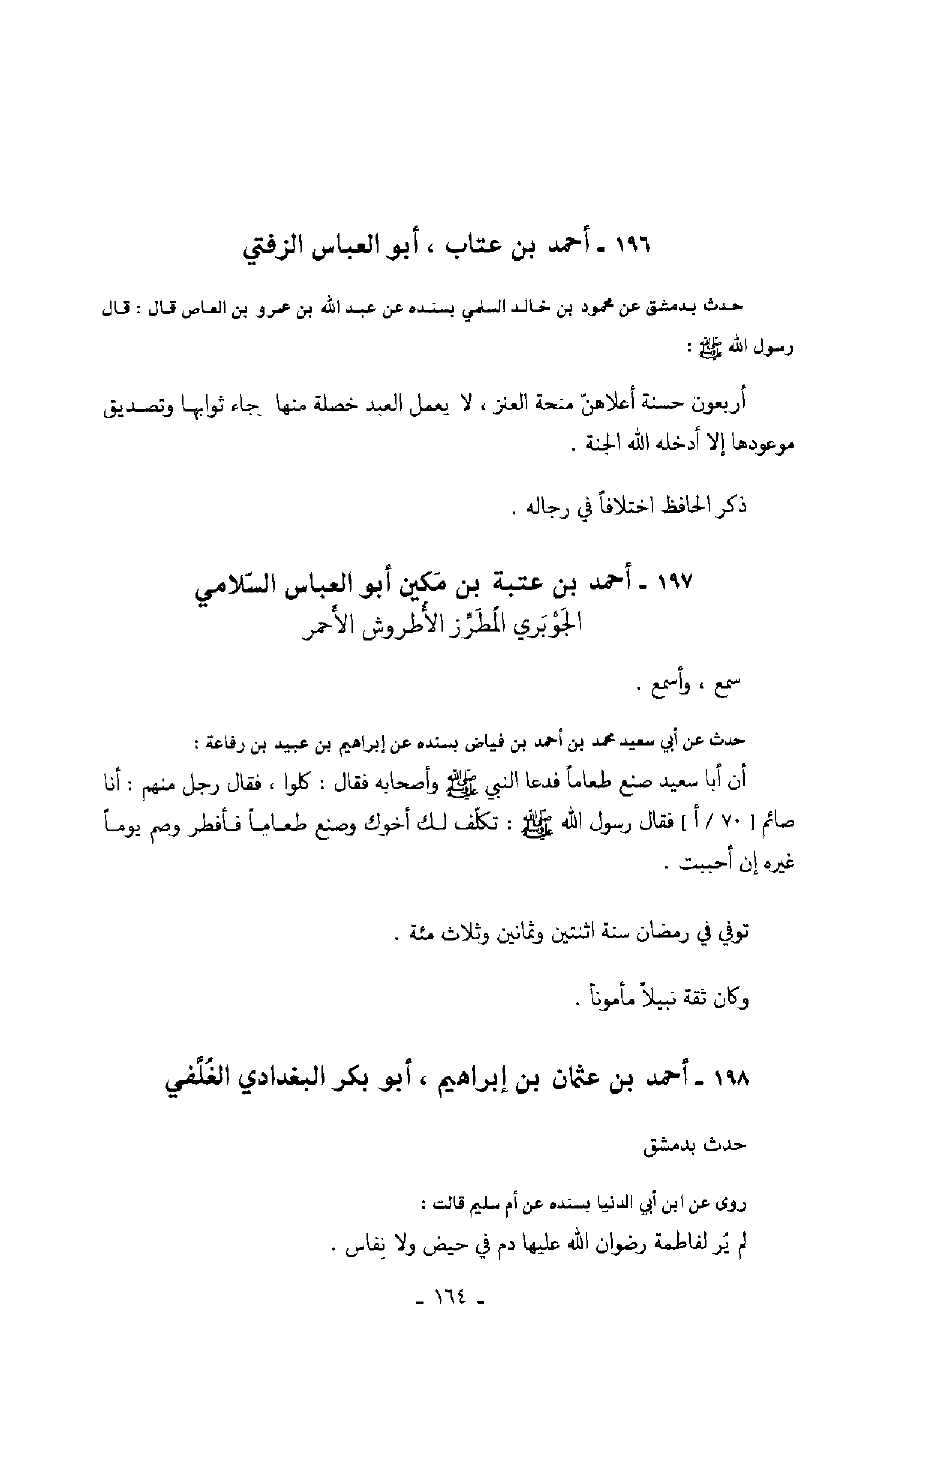 ١٩٦ - أحمد بن عتاب ، أبو العباس الزفتي
حدث بدمشق عن محمود بن خالد السلمي بسنده عن عبد الله بن عمرو بن العاص قال : قال
رسول الله ﷺ :
أربعون حسنة أعلاهنّ منحة العنز ، لا يعمل العبد خصلة منها جاء ثوابها وتصديق
موعودها إلا أدخله الله الجنة .
ذكر الحافظ اختلافاً في رجاله .
١٩٧ - أحمد بن عتبة بن مَكين أبو العباس السّلامي
الجَوْبَري المُطَرِّز الأُطروش الأَحمر
سمع ، وأسمع .
حدث عن أبي سعيد محمد بن أحمد بن فياض بسنده عن إبراهيم بن عبيد بن رفاعة :
أن أبا سعيد صنع طعاماً فدعا النبي ﷺ وأصحابه فقال : كلوا ، فقال رجل منهم : أنا
صائم [ ٧٠ / أ ] فقال رسول الله ﷺ : تكلّف لك أخوك وصنع طعاماً فأفطر وصم يوماً
غيره إن أحببت .
توفي في رمضان سنة اثنتين وثمانين وثلاث مئة .
وكان ثقة نبيلاً مأموناً .
١٩٨ - أحمد بن عثمان بن إبراهيم ، أبو بكر البغدادي الغُلَّفي
حدث بدمشق
روى عن ابن أبي الدنيا بسنده عن أم سليم قالت :
لم يُر لفاطمة رضوان الله عليها دم في حيض ولا نِفاس .
- ١٦٤ -